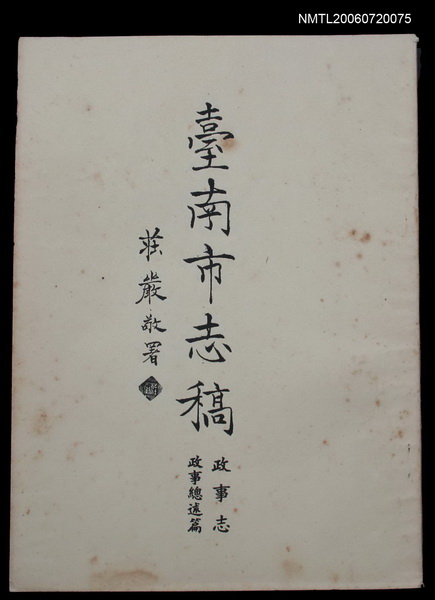 NMTL20060720075
臺南市志稿
政事志
政事總述篇
莊嚴敬署